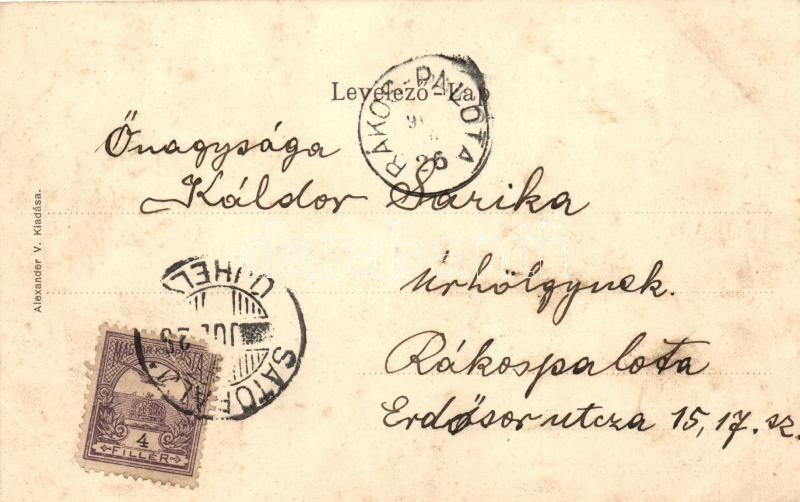 Levelező-Lap
RÁKOS-PALOTA
26
Őnagysága
Káldor Sarika
Úrhölgynek.
Rákospalota
Erdősor utcza 15, 17. sz.
Alexander V. Kiadása.
ÚJHELY
MAGYAR KIR. POSTA
4
FILLÉR